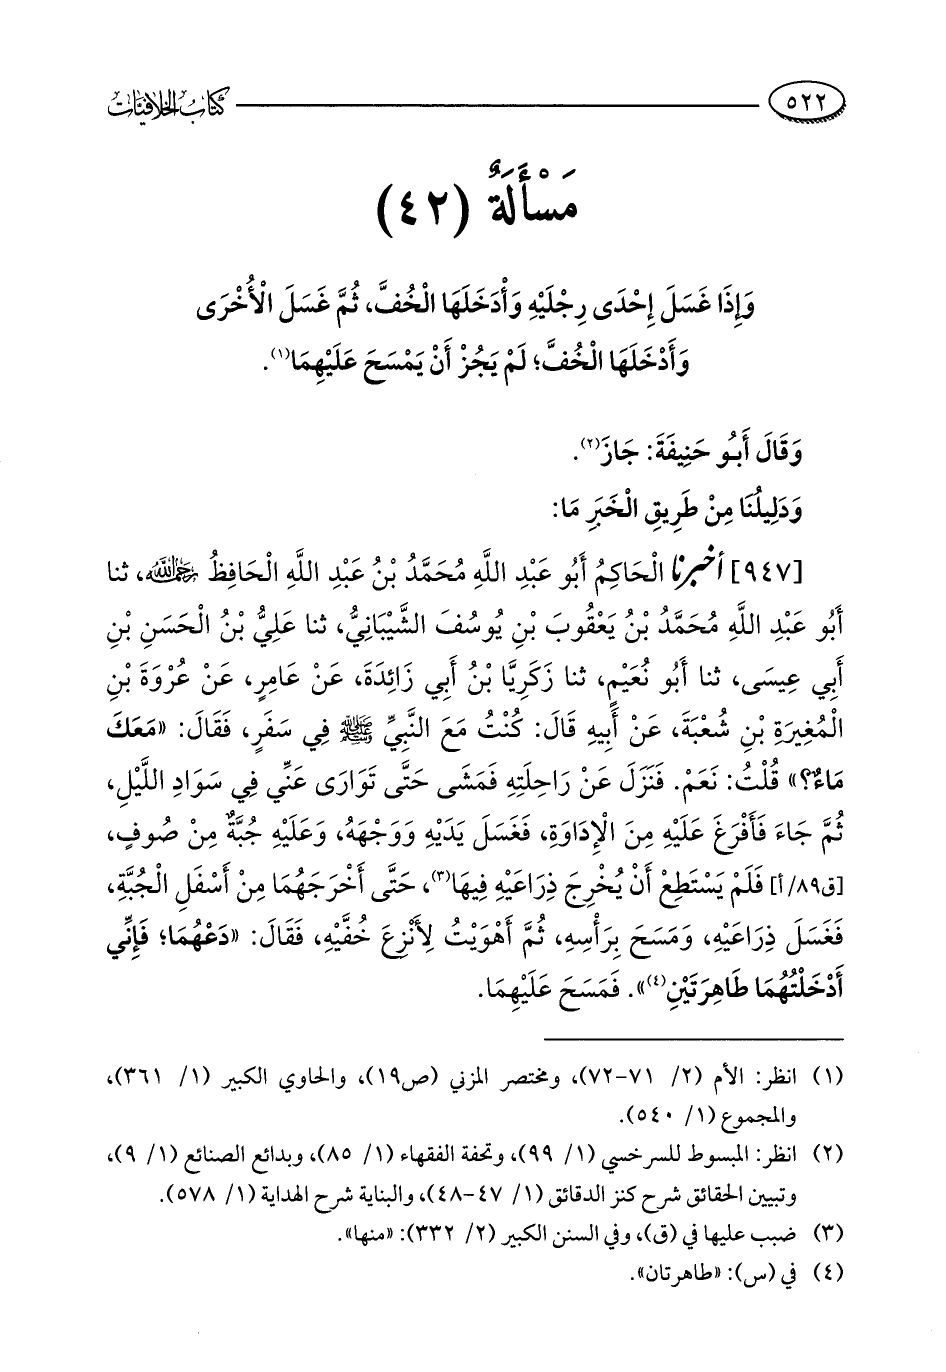 ٥٢٢ كتاب الخلافيات
مَسْأَلَةٌ (٤٢)
وَإِذَا غَسَلَ إِحْدَى رِجْلَيْهِ وَأَدْخَلَهَا الْخُفَّ، ثُمَّ غَسَلَ الْأُخْرَى
وَأَدْخَلَهَا الْخُفَّ؛ لَمْ يَجُزْ أَنْ يَمْسَحَ عَلَيْهِمَا(١).
وَقَالَ أَبُو حَنِيفَةَ: جَازَ(٢).
وَدَلِيلُنَا مِنْ طَرِيقِ الْخَبَرِ مَا:
[٩٤٧] أخبرنا الْحَاكِمُ أَبُو عَبْدِ اللَّهِ مُحَمَّدُ بْنُ عَبْدِ اللَّهِ الْحَافِظُ رحمه الله، ثنا
أَبُو عَبْدِ اللَّهِ مُحَمَّدُ بْنُ يَعْقُوبَ بْنِ يُوسُفَ الشَّيْبَانِيُّ، ثنا عَلِيُّ بْنُ الْحَسَنِ بْنِ
أَبِي عِيسَى، ثنا أَبُو نُعَيْمٍ، ثنا زَكَرِيَّا بْنُ أَبِي زَائِدَةَ، عَنْ عَامِرٍ، عَنْ عُرْوَةَ بْنِ
الْمُغِيرَةِ بْنِ شُعْبَةَ، عَنْ أَبِيهِ قَالَ: كُنْتُ مَعَ النَّبِيِّ ﷺ فِي سَفَرٍ، فَقَالَ: «مَعَكَ
مَاءٌ؟» قُلْتُ: نَعَمْ. فَنَزَلَ عَنْ رَاحِلَتِهِ فَمَشَى حَتَّى تَوَارَى عَنِّي فِي سَوَادِ اللَّيْلِ،
ثُمَّ جَاءَ فَأَفْرَغَ عَلَيْهِ مِنَ الْإِدَاوَةِ، فَغَسَلَ يَدَيْهِ وَوَجْهَهُ، وَعَلَيْهِ جُبَّةٌ مِنْ صُوفٍ،
[ق٨٩/ أ] فَلَمْ يَسْتَطِعْ أَنْ يُخْرِجَ ذِرَاعَيْهِ فِيهَا(٣)، حَتَّى أَخْرَجَهُمَا مِنْ أَسْفَلِ الْجُبَّةِ،
فَغَسَلَ ذِرَاعَيْهِ، وَمَسَحَ بِرَأْسِهِ، ثُمَّ أَهْوَيْتُ لِأَنْزِعَ خُفَّيْهِ، فَقَالَ: «دَعْهُمَا؛ فَإِنِّي
أَدْخَلْتُهُمَا طَاهِرَتَيْنِ(٤)». فَمَسَحَ عَلَيْهِمَا.
(١) انظر: الأم (٢/ ٧١-٧٢)، ومختصر المزني (ص١٩)، والحاوي الكبير (١/ ٣٦١)،
والمجموع (١/ ٥٤٠).
(٢) انظر: المبسوط للسرخسي (١/ ٩٩)، وتحفة الفقهاء (١/ ٨٥)، وبدائع الصنائع (١/ ٩)،
وتبيين الحقائق شرح كنز الدقائق (١/ ٤٧-٤٨)، والبناية شرح الهداية (١/ ٥٧٨).
(٣) ضبب عليها في (ق)، وفي السنن الكبير (٢/ ٣٣٢): «منها».
(٤) في (س): «طاهرتان».